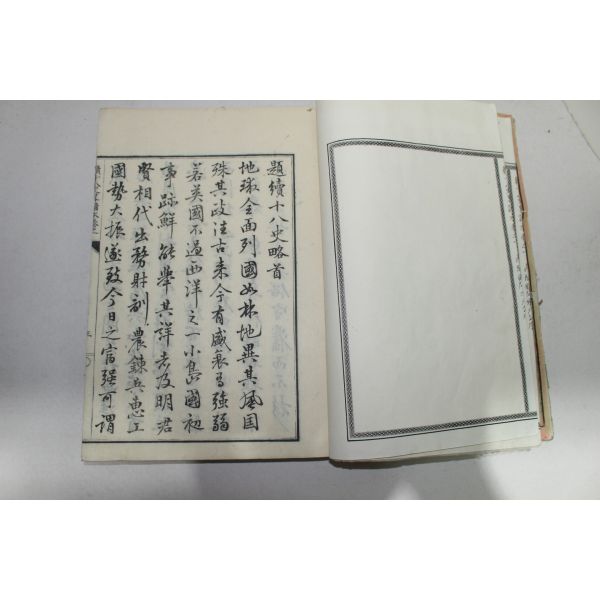 題續十八史略首
地球全面列國如林地異其風国
殊其政法古来今有盛衰焉強弱
若英國不過西洋之一小島國初
事跡鮮能舉其詳者及明君
賢相代出務射利農錬兵恵工
國勢大振遂致今日之富强可謂